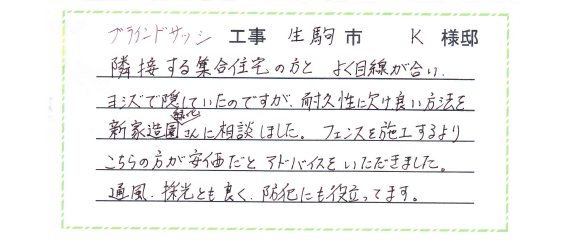 ブラインドサッシ 工事 生駒 市 K 様邸
隣接する集合住宅の方と よく目線が合い、
ヨシズで隠していたのですが、耐久性に欠け良い方法を
新家造園緑化さんに相談しました。フェンスを施工するより
こちらの方が安価だと アドバイスをいただきました。
通風、採光とも良く、防犯にも役立ってます。